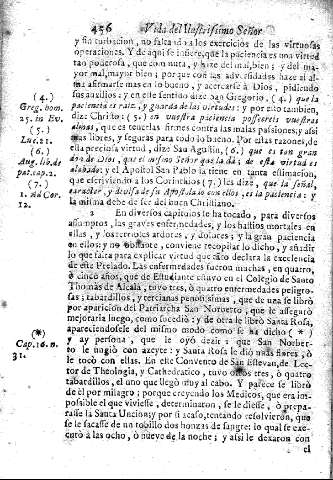 456 Vida del Ilustrissimo Señor
y sin turbacion, no falta à los exercicios de las virtuosas
operaciones. Y de aqui se infiere, que la paciencia es una virtud
tan poderosa, que con nada, y haze del mal, bien; y del ma-
yor mal, mayor bien; porque con las adversidades haze al al-
ma afirmarse mas en lo bueno, y acercarse à Dios, pidiendo
sus auxilios; y en este sentido dize San Gregorio, (4.) que la
paciencia es raiz, y guarda de las virtudes; y por esto tambien,
dize Christo: (5.) en vuestra paciencia possereis vuestras
almas, que es tenerlas firmes contra las malas passiones; y assi
mas libres, y seguras para todo lo bueno. Por estas razones, de
esta preciosa virtud, dize San Agustin, (6.) que es tan gran
don de Dios, que el mismo Señor que la dà; de esta virtud es
alabado; y el Apostol San Pablo la tiene en tanta estimacion,
que escriviendo à los Corinthios (7.) les dize, que la señal,
caracter, y divisa de su Apostolado con ellos, es la paciencia: y
la misma debe de ser del buen Christiano.
(4.)
Greg. hom.
25. in Ev.
(5.)
Luc. 21.
(6.)
Aug. lib. de
pat. cap. 2.
(7.)
1. ad Cor.
12.
2 En diversos capitulos se ha tocado, para diversos
assumptos, las graves enfermedades, y los hastios mortales en
ellas, y los terribles ardores, y dolores; y la gran paciencia
en ellos: y no obstante, conviene recopilar lo dicho, y añadir
lo que falta para explicar virtud que assi declara la excelencia
de este Prelado. Las enfermedades fueron muchas, en quatro,
ò cinco años, que de Estudiante estuvo en el Colegio de Santo
Thomas de Alcalà, tuvo tres, ò quatro enfermedades peligro-
sas; tabardillos, y tercianas penosissimas, que de una se librò
por aparicion del Patriarcha San Norberto, que le assegurò
mejoraria luego, como sucediò: y de otra le librò Santa Rosa,
apareciendosele del mismo modo como se ha dicho (*)
y ay persona, que le oyò dezir: que San Norber-
to le ungiò con azeyte: y Santa Rosa le diò unas flores, ò
le tocò con ellas. En este Convento de San Estevan, de Lec-
tor de Theologia, y Cathedratico, tuvo otros tres, ò quatro
tabardillos, el uno que llegò muy al cabo. Y parece se librò
de èl por milagro; porque creyendo los Medicos, que era im-
possible el que viviesse, determinaron, se le diesse, ò prepa-
rasse la Santa Uncion; y por si acaso, tentando resolvieron, que
se le sacasse de un tobillo dos honzas de sangre: lo qual se exe-
cutò à las ocho, ò nueve de la noche; y assi le dexaron con
el
(*)
Cap. 16. n.
31.